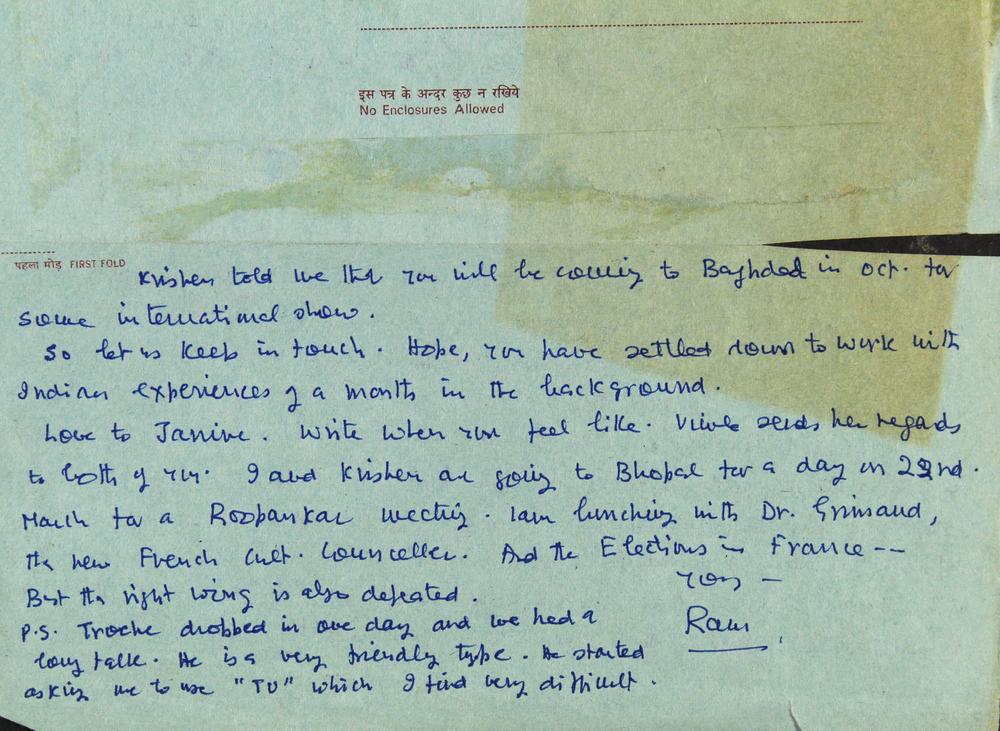 इस पत्र के अन्दर कुछ न रखिये
No Enclosures Allowed
पहला मोड़ FIRST FOLD
Krishen told me that you will be coming to Baghdad in Oct. for
some international show.
So let us keep in touch. Hope, you have settled down to work with
Indian experiences of a month in the background.
Love to Janine. Write when you feel like. Vimla sends her regards
to both of you. I and Krishen are going to Bhopal for a day on 22nd.
March for a Roopankar meeting. I am lunching with Dr. Grimaud,
the new French Cult. Counceller. And the Elections in France --
But the right wing is also defeated.
yours –
Ram
P.S. Troche dropped in one day and we had a
long talk. He is a very friendly type. He started
asking me to use "TU" which I find very difficult.